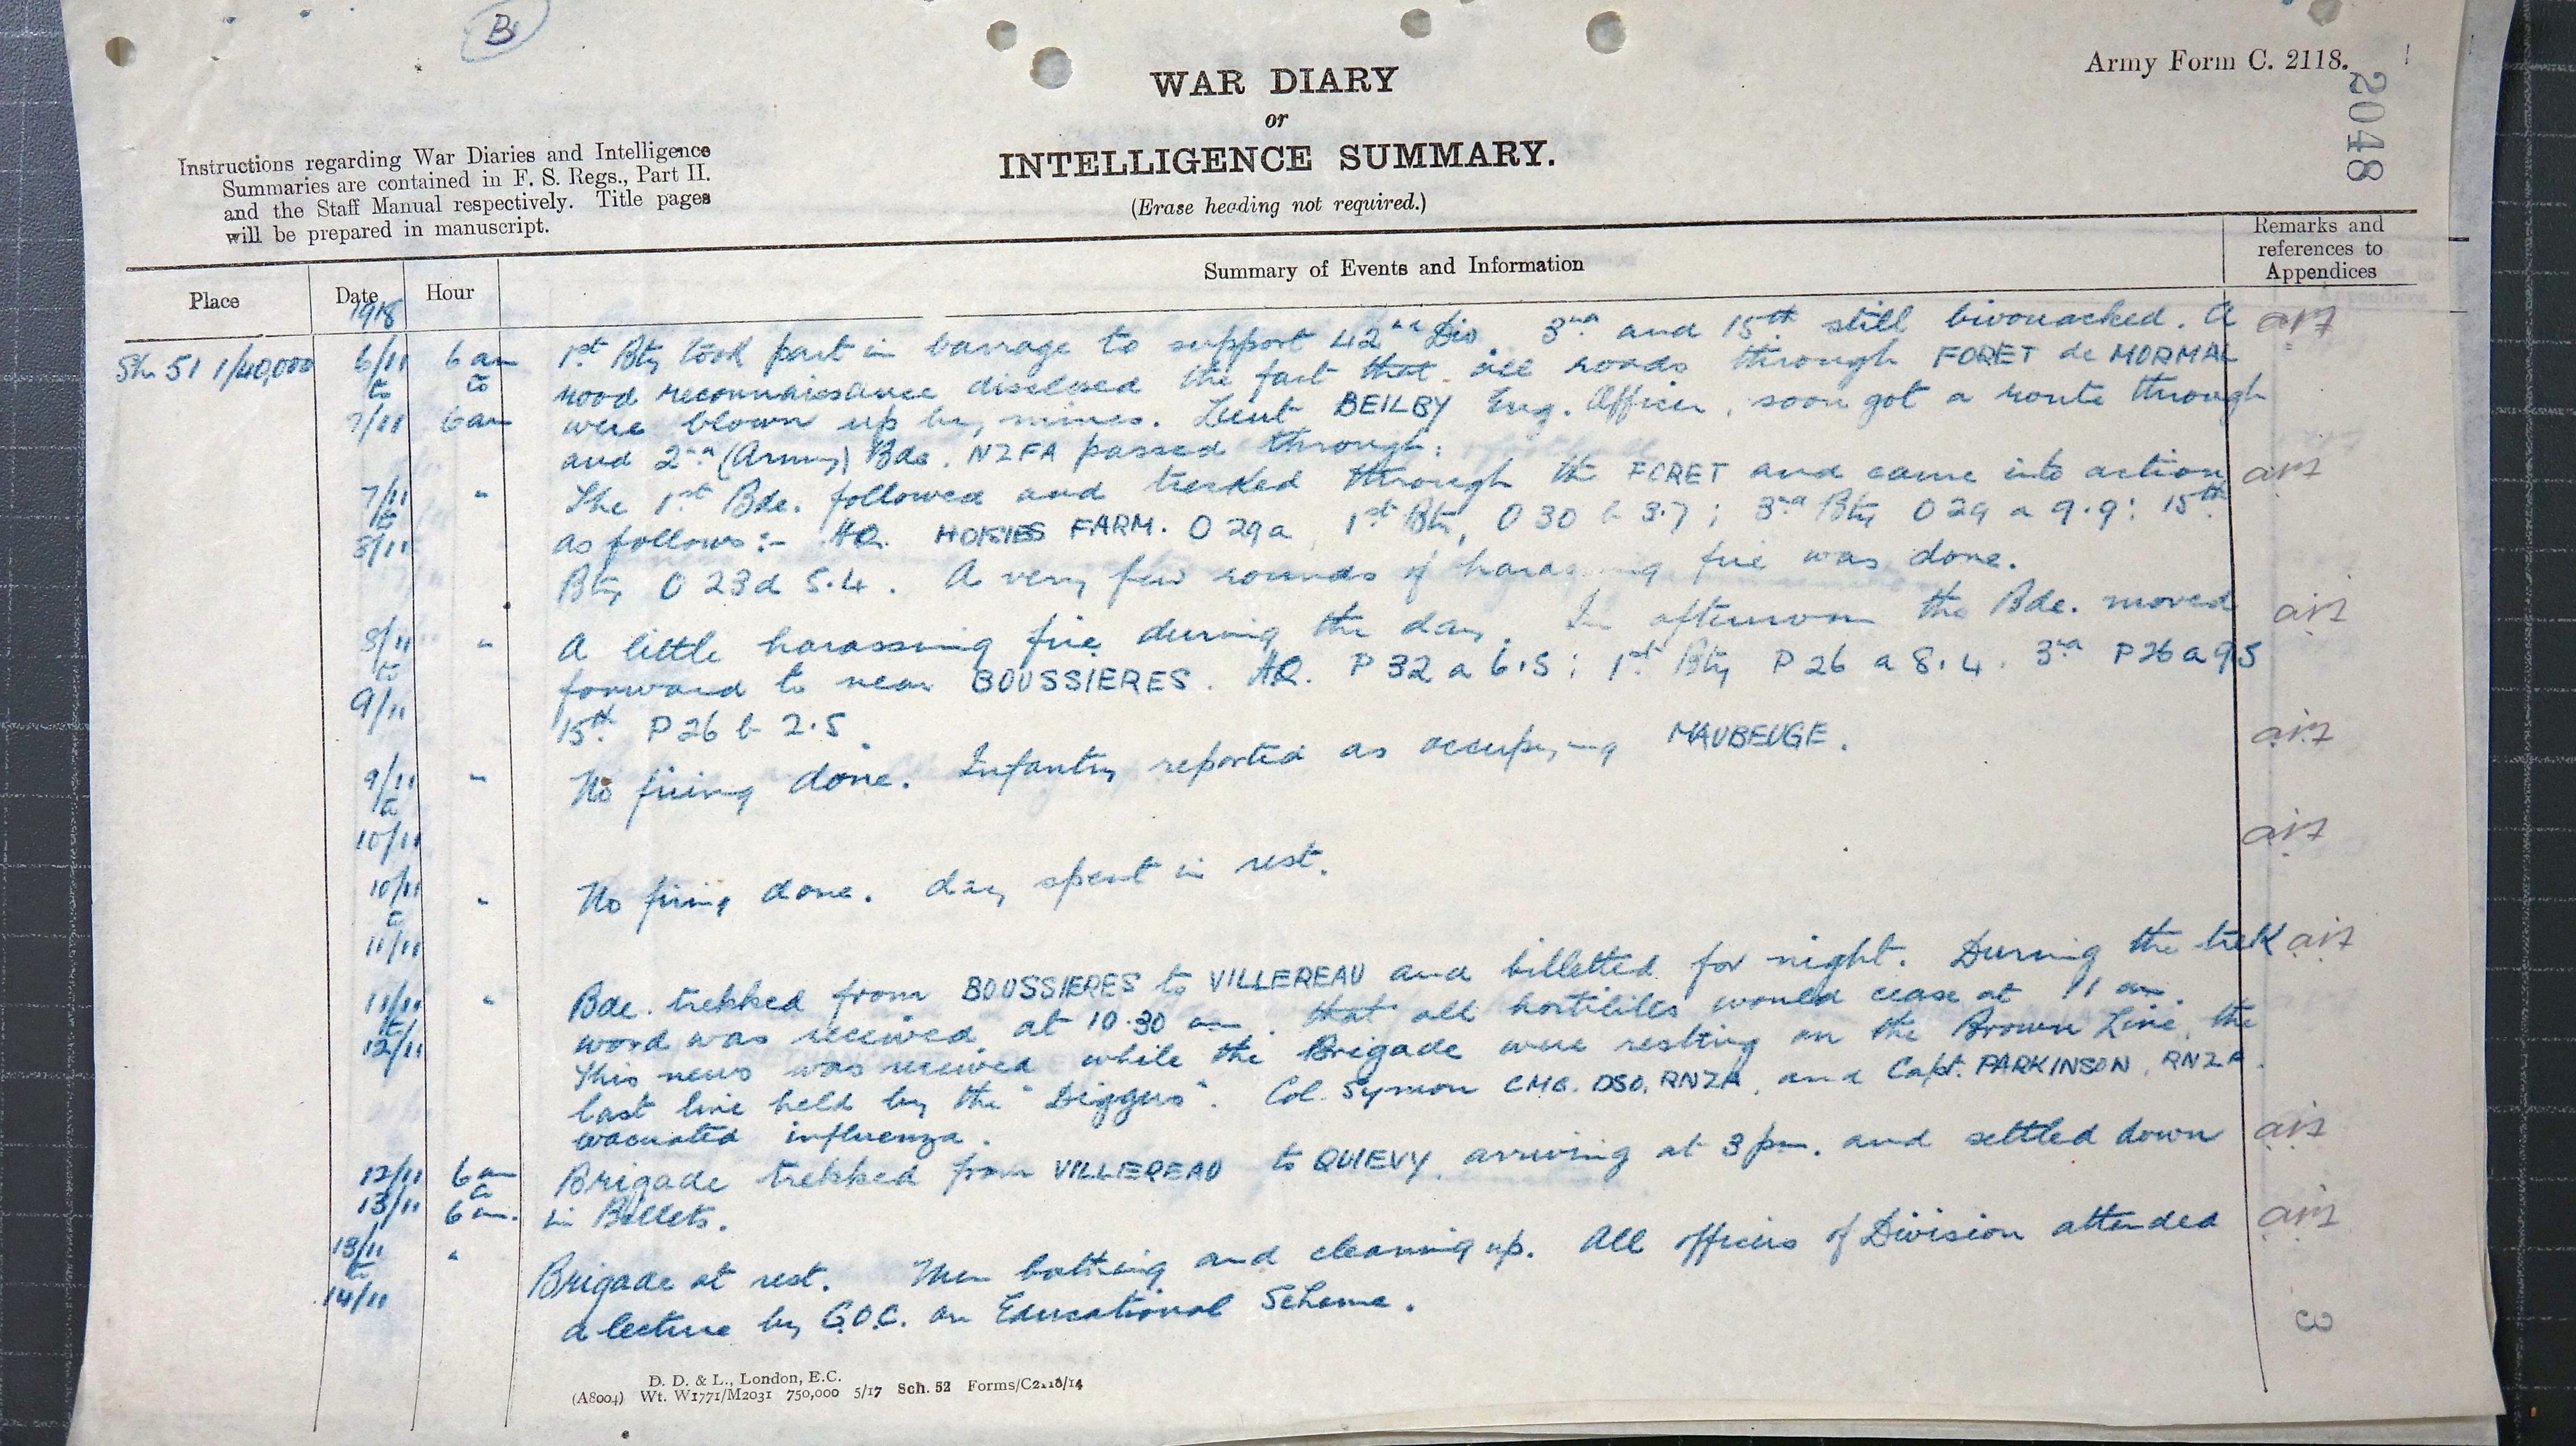 B
Army Form C. 2118.
2048
WAR DIARY
or
INTELLIGENCE SUMMARY.
(Erase heading not required.)
Instructions regarding War Diaries and Intelligence
Summaries are contained in F. S. Regs., Part II.
and the Staff Manual respectively. Title pages
will be prepared in manuscript.
Place Date Hour Summary of Events and Information Remarks and references to Appendices
1918
Sh. 51 1/40,000 6/11 6 am 1st Bty took part in barrage to support 42nd Div. 3rd and 15th still bivouacked. A
to to road reconnaissance disclosed the fact that all roads through FORET de MORMAL
7/11 6 am were blown up by mines. Lieut BEILBY Eng. Officer, soon got a route through
and 2nd (Army) Bde. NZFA passed through.
7/11 " The 1st Bde. followed and trekked through the FORET and came into action
to as follows:- HQ. FARM. O 29 a 1st Bty, O 30 b 3.7; 3rd Bty O 29 a 9.9: 15th
8/11 Bty O 23 d 5.4. A very few rounds of harassing fire was done.
8/11 " A little harassing fire during the day. In afternoon the Bde. moved
to forward to near BOUSSIERES. HQ. P 32 a 6.5; 1st Bty P 26 a 8.4. 3rd P 26 a 9.5
9/11 15th P 26 b 2.5
9/11 " No firing done. Infantry reported as occupying MAUBEUGE.
to
10/11
10/11 " No firing done. day spent in rest.
to
11/11
11/11 " Bde. trekked from BOUSSIERES to VILLEREAU and billetted for night. During the trek
to word was received at 10.30 am. that all hostilities would cease at 11 am.
12/11 This news was received while the Brigade were resting on the Brown Line, the
last line held by the "Diggers". Col. Symon CMG. DSO. RNZA. and Capt. PARKINSON, RNZA.
evacuated influenza.
12/11 6 am Brigade trekked from VILLEREAU to QUIEVY, arriving at 3 pm. and settled down
to
13/11 6 am. in Billets.
13/11 " Brigade at rest. Men bathing and cleaning up. All officers of Division attended
to
14/11 a lecture by G.O.C. on Educational Scheme.
3
D. D. & L., London, E.C.
(A8004) Wt. W1771/M2031 750,000 5/17 Sch. 52 Forms/C2118/14